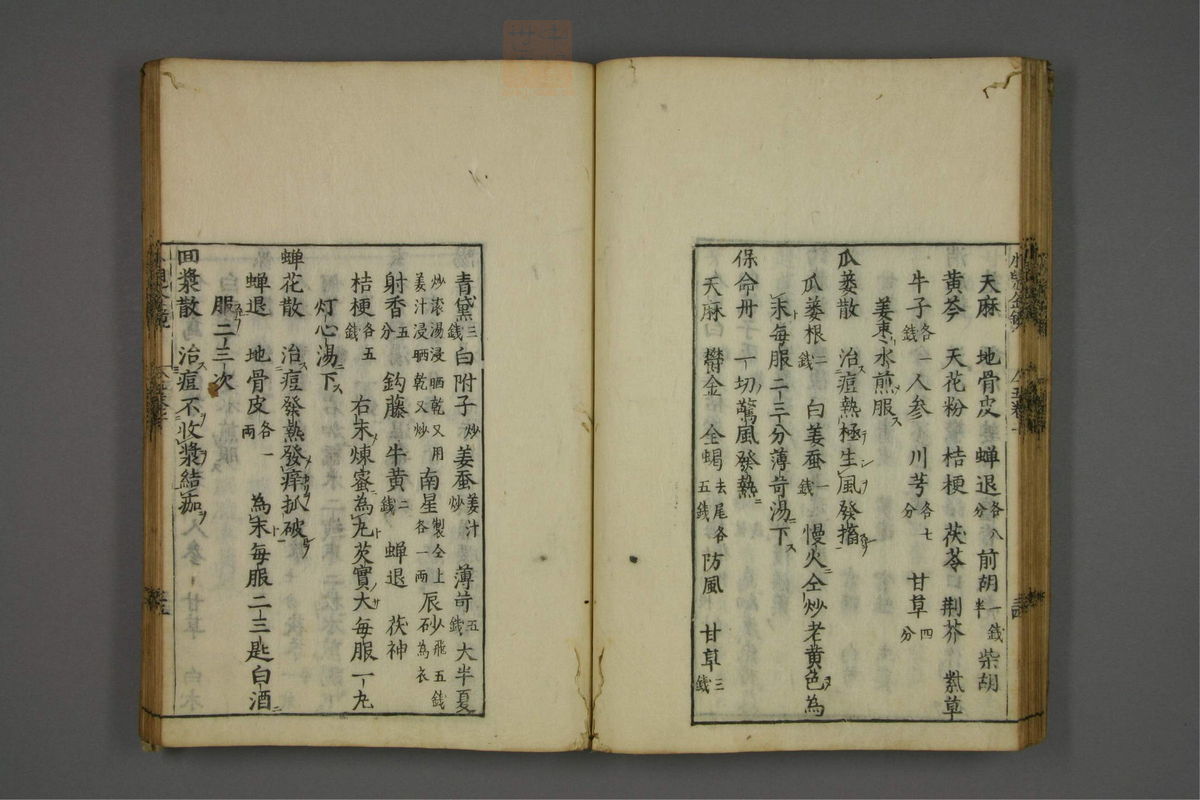 天麻 地骨皮 蝉退各八分 前胡一錢半 柴胡
黄芩 天花粉 桔梗 茯苓 荆芥 紫草
牛子各一錢 人参 川芎各七分 甘草四分
姜枣水煎服
瓜蒌散 治痘熱極生風發搐
瓜蒌根二錢 白姜蚕一錢 慢火仝炒老黄色為
末每服二三分薄苛湯下
保命丹 一切驚風發熱
天麻 欝金 全蝎去尾各五錢 防風 甘草三錢
青黛三錢 白附子炒 姜蚕姜汁炒 薄苛五錢 大半夏
炒滚湯浸晒乾又用姜汁浸晒乾又炒 南星製仝上各一両 辰砂飛五錢為衣
射香五分 鈎藤 牛黄二錢 蝉退 茯神
桔梗各五錢 右末煉蜜為丸芡實大每服一丸
灯心湯下
蝉花散 治痘發熱發痒抓破
蝉退 地骨皮各一両 為末每服二三匙白酒
服二三次
回漿散 治痘不收漿結痂